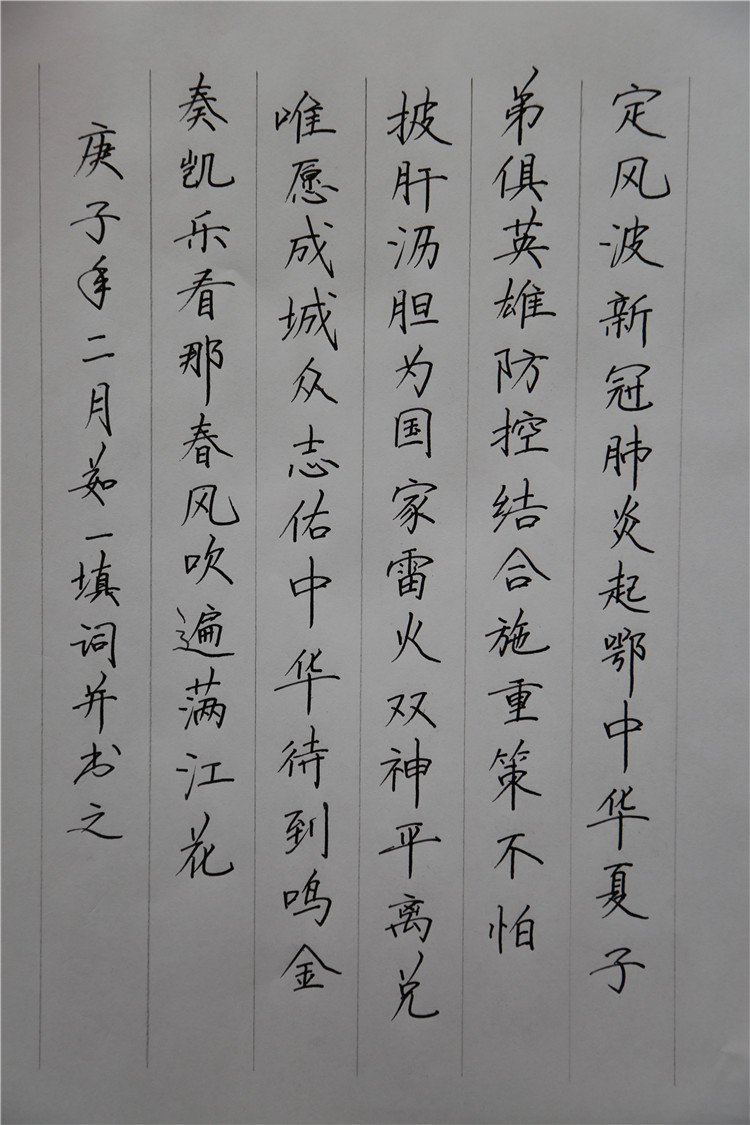 定风波新冠肺炎起鄂中华夏子
弟俱英雄防控结合施重策不怕
披肝沥胆为国家雷火双神平离兑
唯愿成城众志佑中华待到鸣金
奏凯乐看那春风吹遍满江花
庚子年二月茹一填词并书之